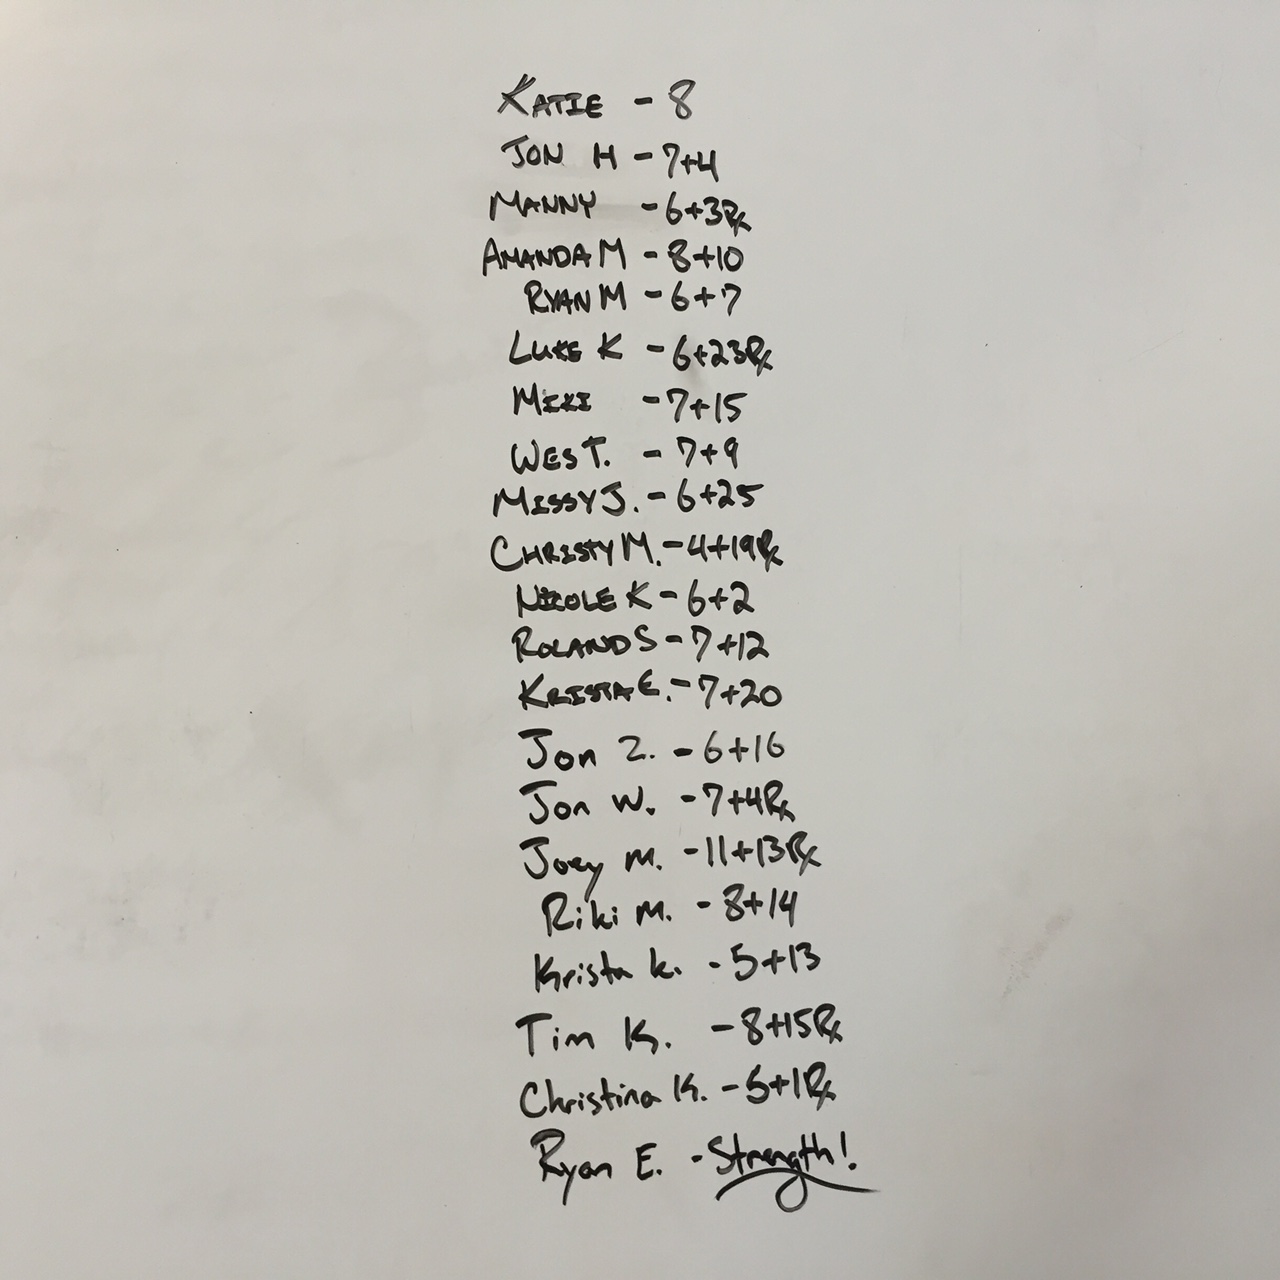 KATIE - 8
JON H - 7+4
MANNY - 6+3Rx
AMANDA M - 8+10
RYAN M - 6+7
LUKE K - 6+23Rx
MIKI - 7+15
WES T. - 7+9
MISSY J. - 6+25
CHRISTY M. - 4+19Rx
NICOLE K - 6+2
ROLAND S - 7+12
KRISTA E. - 7+20
Jon Z. - 6+16
Jon W. - 7+4Rx
Joey M. - 11+13Rx
Riki M. - 8+14
Krista K. - 5+13
Tim K. - 8+15Rx
Christina K. - 5+1Rx
Ryan E. - Strength!